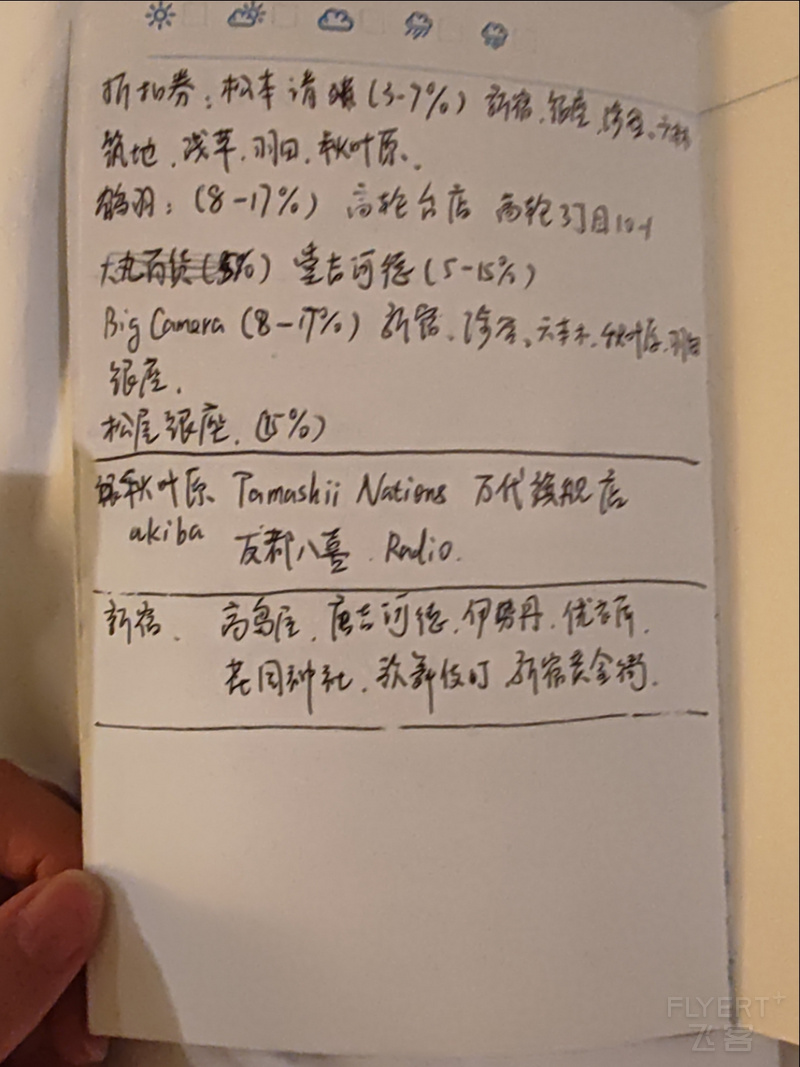 折扣券：松本请 (3-7%) 新宿、银座、涩谷、六本木
筑地、浅草、羽田、秋叶原、
鹤羽：(8-17%) 高轮台店 高轮3丁目10-1
大丸百货(5%) 堂吉诃德(5-15%)
Big Camera (8-17%) 新宿、涩谷、六本木、秋叶原、羽田
银座.
松屋银座.(5%)
秋叶原 Tamashii Nations 万代旗舰店
akiba 友都八喜.Radio.
新宿、高岛屋.唐吉诃德.伊势丹.优衣库.
花园神社.歌舞伎町 新宿黄金街.
FLYERT+
飞客